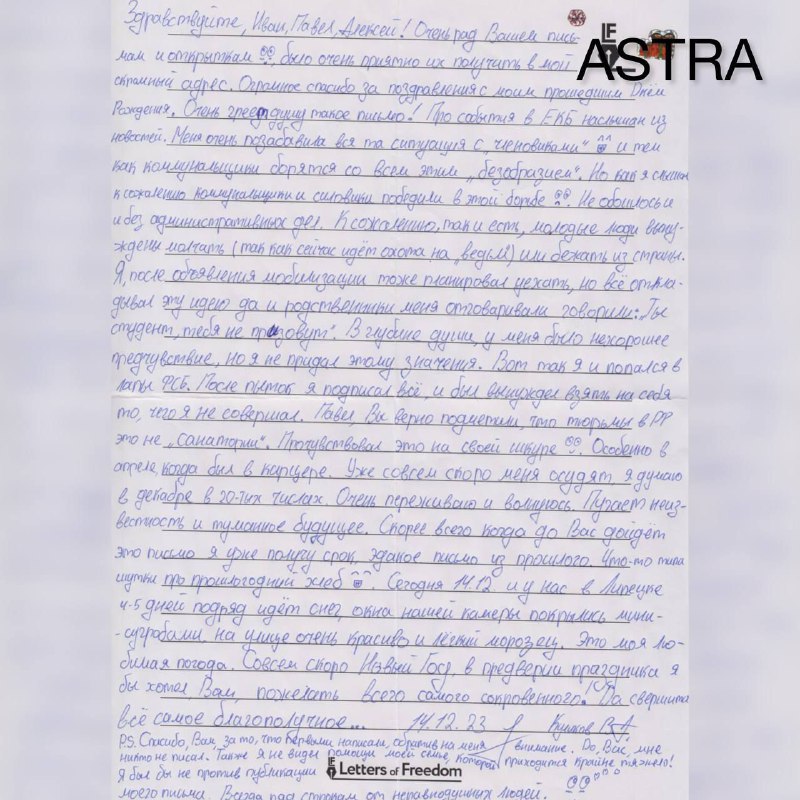 Здравствуйте, Иван, Павел, Алексей! Очень рад Вашем пись-
мам и открыткам, было очень приятно их получать в мой
ASTRA
скромный адрес. Огромное спасибо за поздравления с моим прошедшим Днём
Рождения. Очень греет душу такое письмо! Про события в ЕКБ наслышан из
новостей. Меня очень позабавила вся та ситуация с „членовиками“ и тем
как коммунальщики борятся со всем этим „безобразием“. Но как я слышал
к сожалению коммунальщики и силовики победили в этой борьбе. Не обошлось и
и без административных дел. К сожалению, так и есть, молодые люди выну-
ждены молчать (так как сейчас идёт охота на „ведьм“) или бежать из страны.
Я, после объявления мобилизации тоже планировал уехать, но всё откла-
дывал эту идею да и родственники меня отговаривали говорили: „Ты
студент, тебя не призовут“. В глубине души, у меня было нехорошее
предчувствие, но я не придал этому значения. Вот так я и попался в
лапы ФСБ. После пыток я подписал всё, и был вынужден взять на себя
то, чего я не совершал. Павел, Вы верно подметили, что тюрьмы в РФ
это не „санатории“. Прочувствовал это на своей шкуре. Особенно в
апреле, когда был в карцере. Уже совсем скоро меня осудят, я думаю
в декабре в 20-тых числах. Очень переживаю и волнуюсь. Пугает неиз-
вестность и туманное будущее. Скорее всего когда до Вас дойдёт
это письмо я уже получу срок. Эдакое письмо из прошлого. Что-то типа
шутки про прошлогодний хлеб. Сегодня 14.12. и у нас в Липецке
4-5 дней подряд идёт снег, окна нашей камеры покрылись мини-
-сугробами, на улице очень красиво и лёгкий морозец. Это моя лю-
бимая погода. Совсем скоро Новый Год, в предверии праздника я
бы хотел, Вам, пожелать всего самого сокровенного! Да свершится
всё самое благополучное... 14.12.23
P.S. Спасибо, Вам, за то, что первыми написали, обратив на меня внимание. До, Вас, мне
никто не писал. Также я не видел помощи моей семье, которой приходится крайне тяжело!
Я был бы не против публикации
Letters of Freedom
моего письма. Всегда рад строкам от неравнодушных людей.